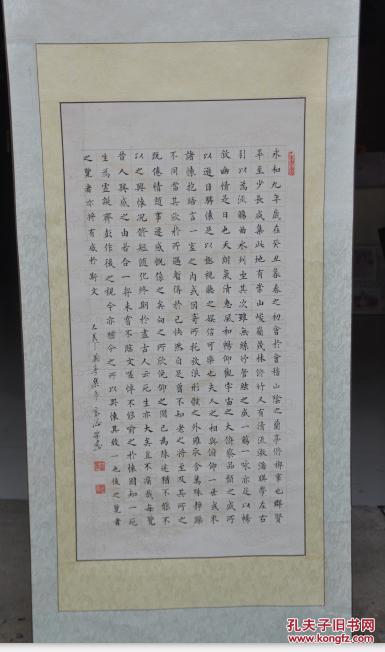 永和九年歲在癸丑暮春之初會於會稽山陰之蘭亭脩稧事也群賢
畢至少長咸集此地有崇山峻嶺茂林修竹又有清流激湍暎帶左右
引以為流觴曲水列坐其次雖無絲竹管絃之盛一觴一詠亦足以暢
敘幽情是日也天朗氣清惠風和暢仰觀宇宙之大俯察品類之盛所
以遊目騁懷足以極視聽之娛信可樂也夫人之相與俯仰一世或取
諸懷抱晤言一室之內或因寄所托放浪形骸之外雖取舍萬殊靜躁
不同當其欣於所遇暫得於己快然自足曾不知老之將至及其所之
既倦情隨事遷感慨係之矣向之所欣俛仰之間已為陳迹猶不能不
以之興懷況脩短隨化終期於盡古人云死生亦大矣豈不痛哉每覽
昔人興感之由若合一
未嘗不臨文嗟悼不能喻之於懷固知一死
生為虛誕齊彭
後之
今亦
今之
所以興懷其致一也後之覽者
之覽者亦將有感於斯文
孔夫子旧书网
www.kongfz.com